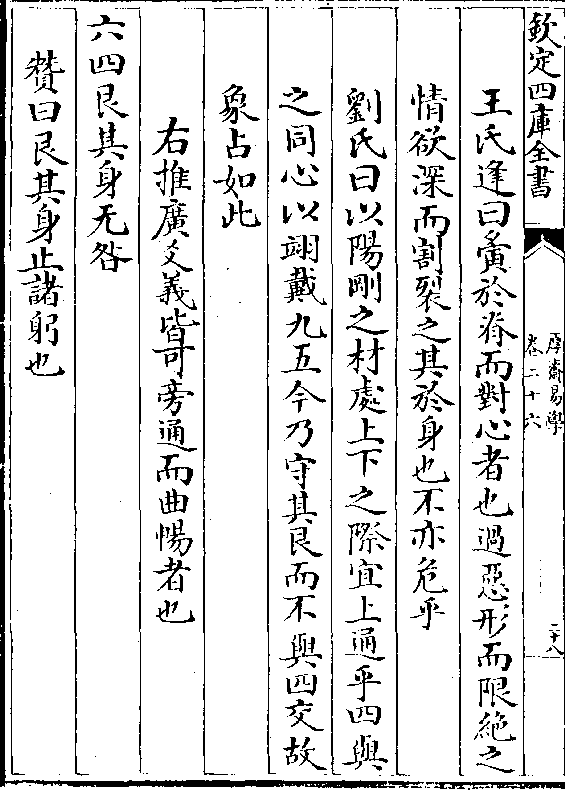 欽定四庫全書
厚齋易學
卷二十六
二十八
王氏逢曰夤於脊而對心者也過惡形而限絶之
情欲深而割裂之其於身也不亦危乎
劉氏曰以陽剛之材處上下之際宜上通乎四與
之同心以翊戴九五今乃守其艮而不與四交故
象占如此
右推廣爻義皆可旁通而曲暢者也
六四艮其身无咎
贊曰艮其身止諸躬也